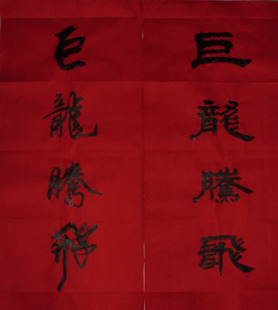 巨龍騰飛
巨龍騰飛